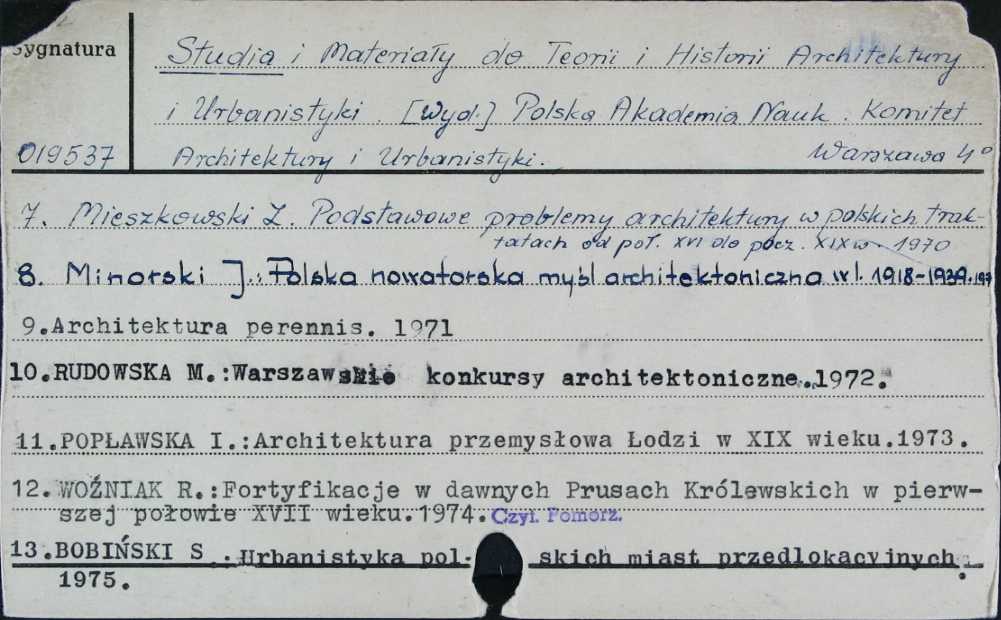 Sygnatura
Studia i Materiały do Teorii i Historii Architektury
i Urbanistyki. [Wyd.] Polska Akademia Nauk. Komitet
019537 Architektury i Urbanistyki. Warszawa 4°
7. Mieszkowski Z. Podstawowe problemy architektury w polskich trak-
tatach od poł. XVI do pocz. XIX w. 1970
8. Minorski J.: Polska nowatorska myśl architektoniczna w l. 1918-1939.
9.Architektura perennis. 1971
10.RUDOWSKA M.:Warszawskie konkursy architektoniczne.1972.
11.POPŁAWSKA I.:Architektura przemysłowa Łodzi w XIX wieku.1973.
12.WOŹNIAK R.:Fortyfikacje w dawnych Prusach Królewskich w pierw-
szej połowie XVII wieku.1974. Czyt. Pomorz.
13.BOBIŃSKI S.:Urbanistyka pol- skich miast przedlokacyjnych.
1975.